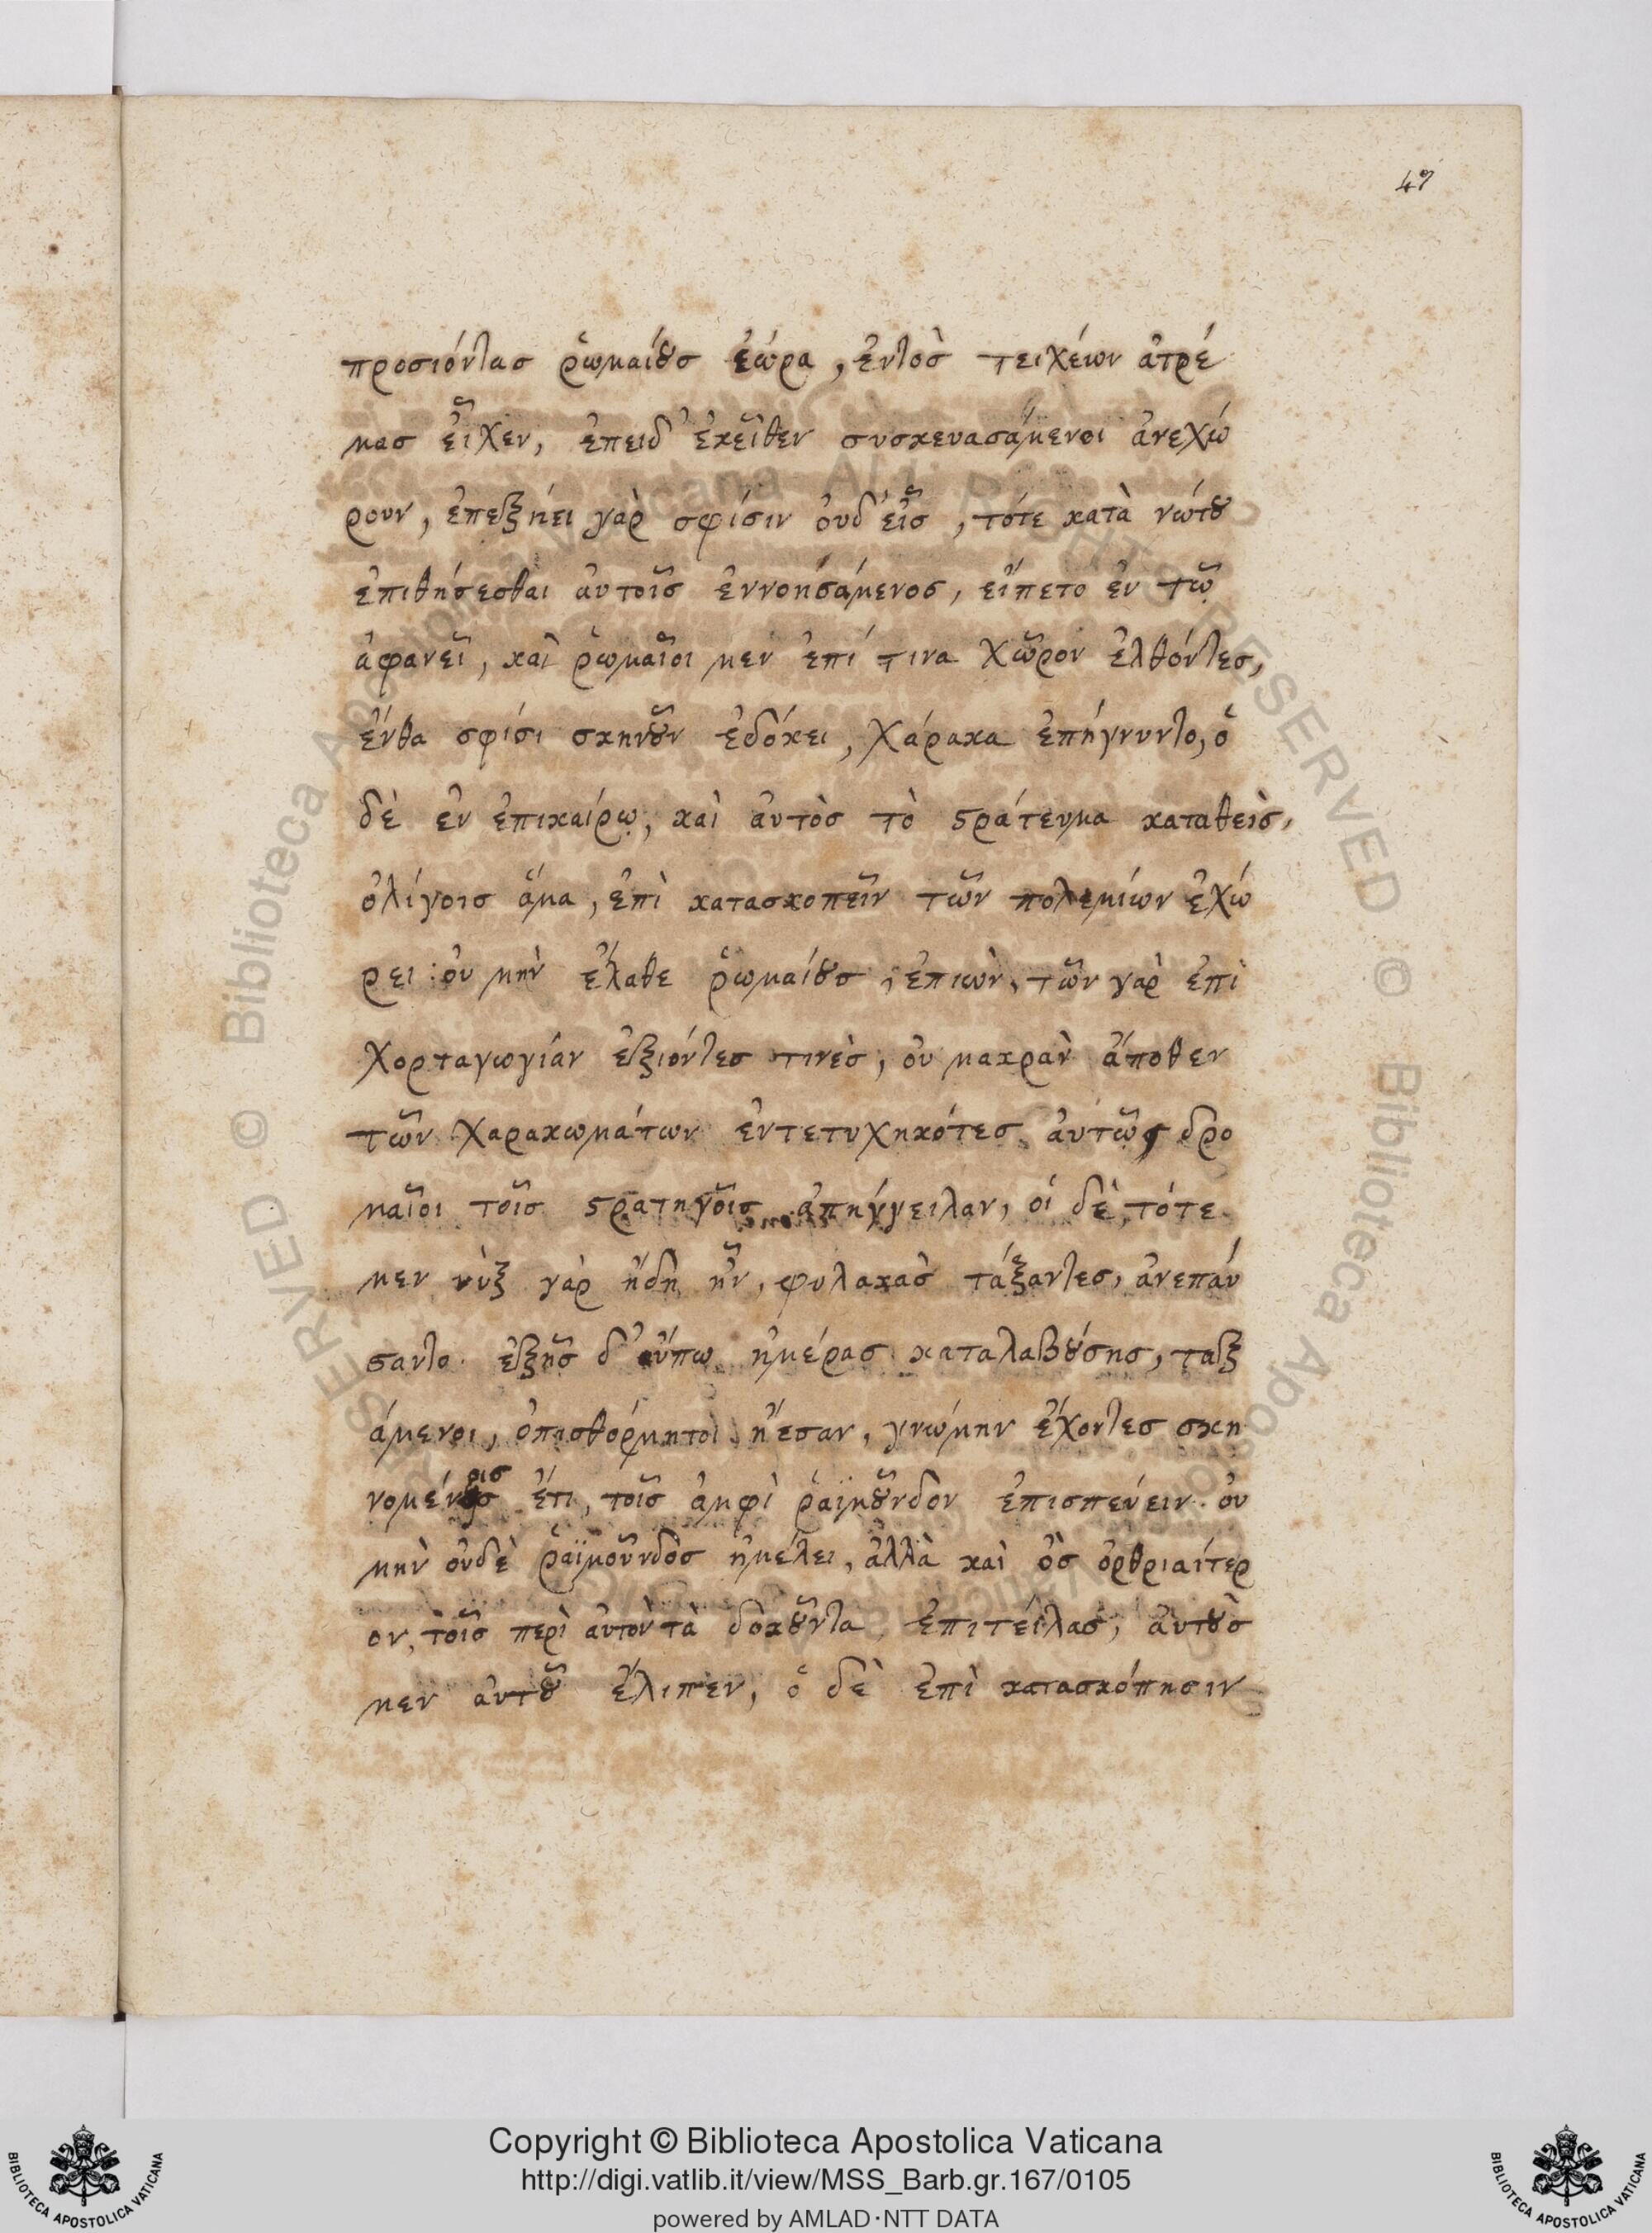 47
προσιόντασ ῥωμαίουσ ἑώρα, ἐντὸσ τειχέων ἀτρέ
μασ εἶχεν, ἐπειδ' ἐκεῖθεν συσκευασάμενοι ἀνεχώ
ρουν, ἐπεξήει γὰρ σφίσιν οὐδ' εἷσ, τότε κατὰ νώτου
ἐπιθήσεσθαι αὐτοῖσ ἐννοησάμενοσ, εἵπετο ἐν τῷ
ἀφανεῖ, καὶ ῥωμαῖοι μεν ἐπί τινα χῶρον ἐλθόντεσ,
ἔνθα σφίσι σκηνοῦν ἐδόκει, χάρακα ἐπήγνυντο, ὁ
δὲ ἐν ἐπικαίρῳ, καὶ αὐτὸσ τὸ στράτευμα καταθεὶσ,
ὀλίγοισ ἅμα, ἐπὶ κατασκοπεῖν τῶν πολεμίων ἐχώ
ρει: οὐ μὴν ἔλαθε ῥωμαίουσ, ἐπιὼν, τῶν γὰρ ἐπὶ
χορταγωγίαν ἐξιόντεσ τινὲσ, οὐ μακρὰν ἄποθεν
τῶν χαρακωμάτων ἐντετυχηκότεσ αὐτῷ δρο
μαῖοι τοῖσ στρατηγοῖσ ἀπήγγειλαν, οἱ δὲ τότε
μεν νὺξ γὰρ ἤδη ἦν, φυλακὰσ τάξαντεσ, ἀνεπαύ
σαντο. ἑξῆσ δ' οὔπω ἡμέρασ καταλαβούσησ, ταξ
άμενοι, ὀπισθόρμητοι ἤεσαν, γνώμην ἔχοντεσ σκη
νομένοισ ἔτι, τοῖσ ἀμφὶ ῥαϊμοῦνδον ἐπισπεύειν. οὐ
μὴν οὐδὲ ῥαϊμοῦνδοσ ἠμέλει, ἀλλὰ καὶ ὃσ ὀρθριαίτερ
ον, τοῖσ περὶ αὐτὸν τὰ δοκοῦντα ἐπιτείλασ, αὐτοὺσ
μεν αὐτοῦ ἔλιπεν, ὁ δὲ ἐπὶ κατασκόπησιν
Copyright © Biblioteca Apostolica Vaticana
http://digi.vatlib.it/view/MSS_Barb.gr.167/0105
powered by AMLAD·NTT DATA
BIBLIOTECA APOSTOLICA VATICANA
BIBLIOTECA APOSTOLICA VATICANA